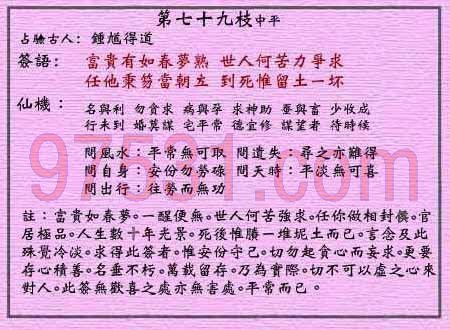 第七十九枝中平
占驗古人：鍾馗得道
簽語：富貴有如春夢熟 世人何苦力爭求
任他秉笏當朝左 到死惟留土一坯
仙機：名與利 勿貪求 病與孕 求神助 蚕與畜 少收成
行未到 婚莫謀 宅平常 德宜修 謀望者 待時候
問風水：平常無可取 問遺失：尋之亦難得
問自身：安份勿勞碌 問天時：平淡無可喜
問出行：往勞而無功
97531.com
註：富貴如春夢。一醒便無。世人何苦強求。任你做相封侯。官
居極品。人生數十年光景。死後惟賸一堆坭土而已。言念及此
殊覺冷淡。求得此簽者。惟安份守己。切勿起貪心而妄求。更要
存心積善。名垂不朽。萬載留存。乃為實際。切不可以虛之心來
對人。此簽無歡喜之處亦無害處。平常而已。